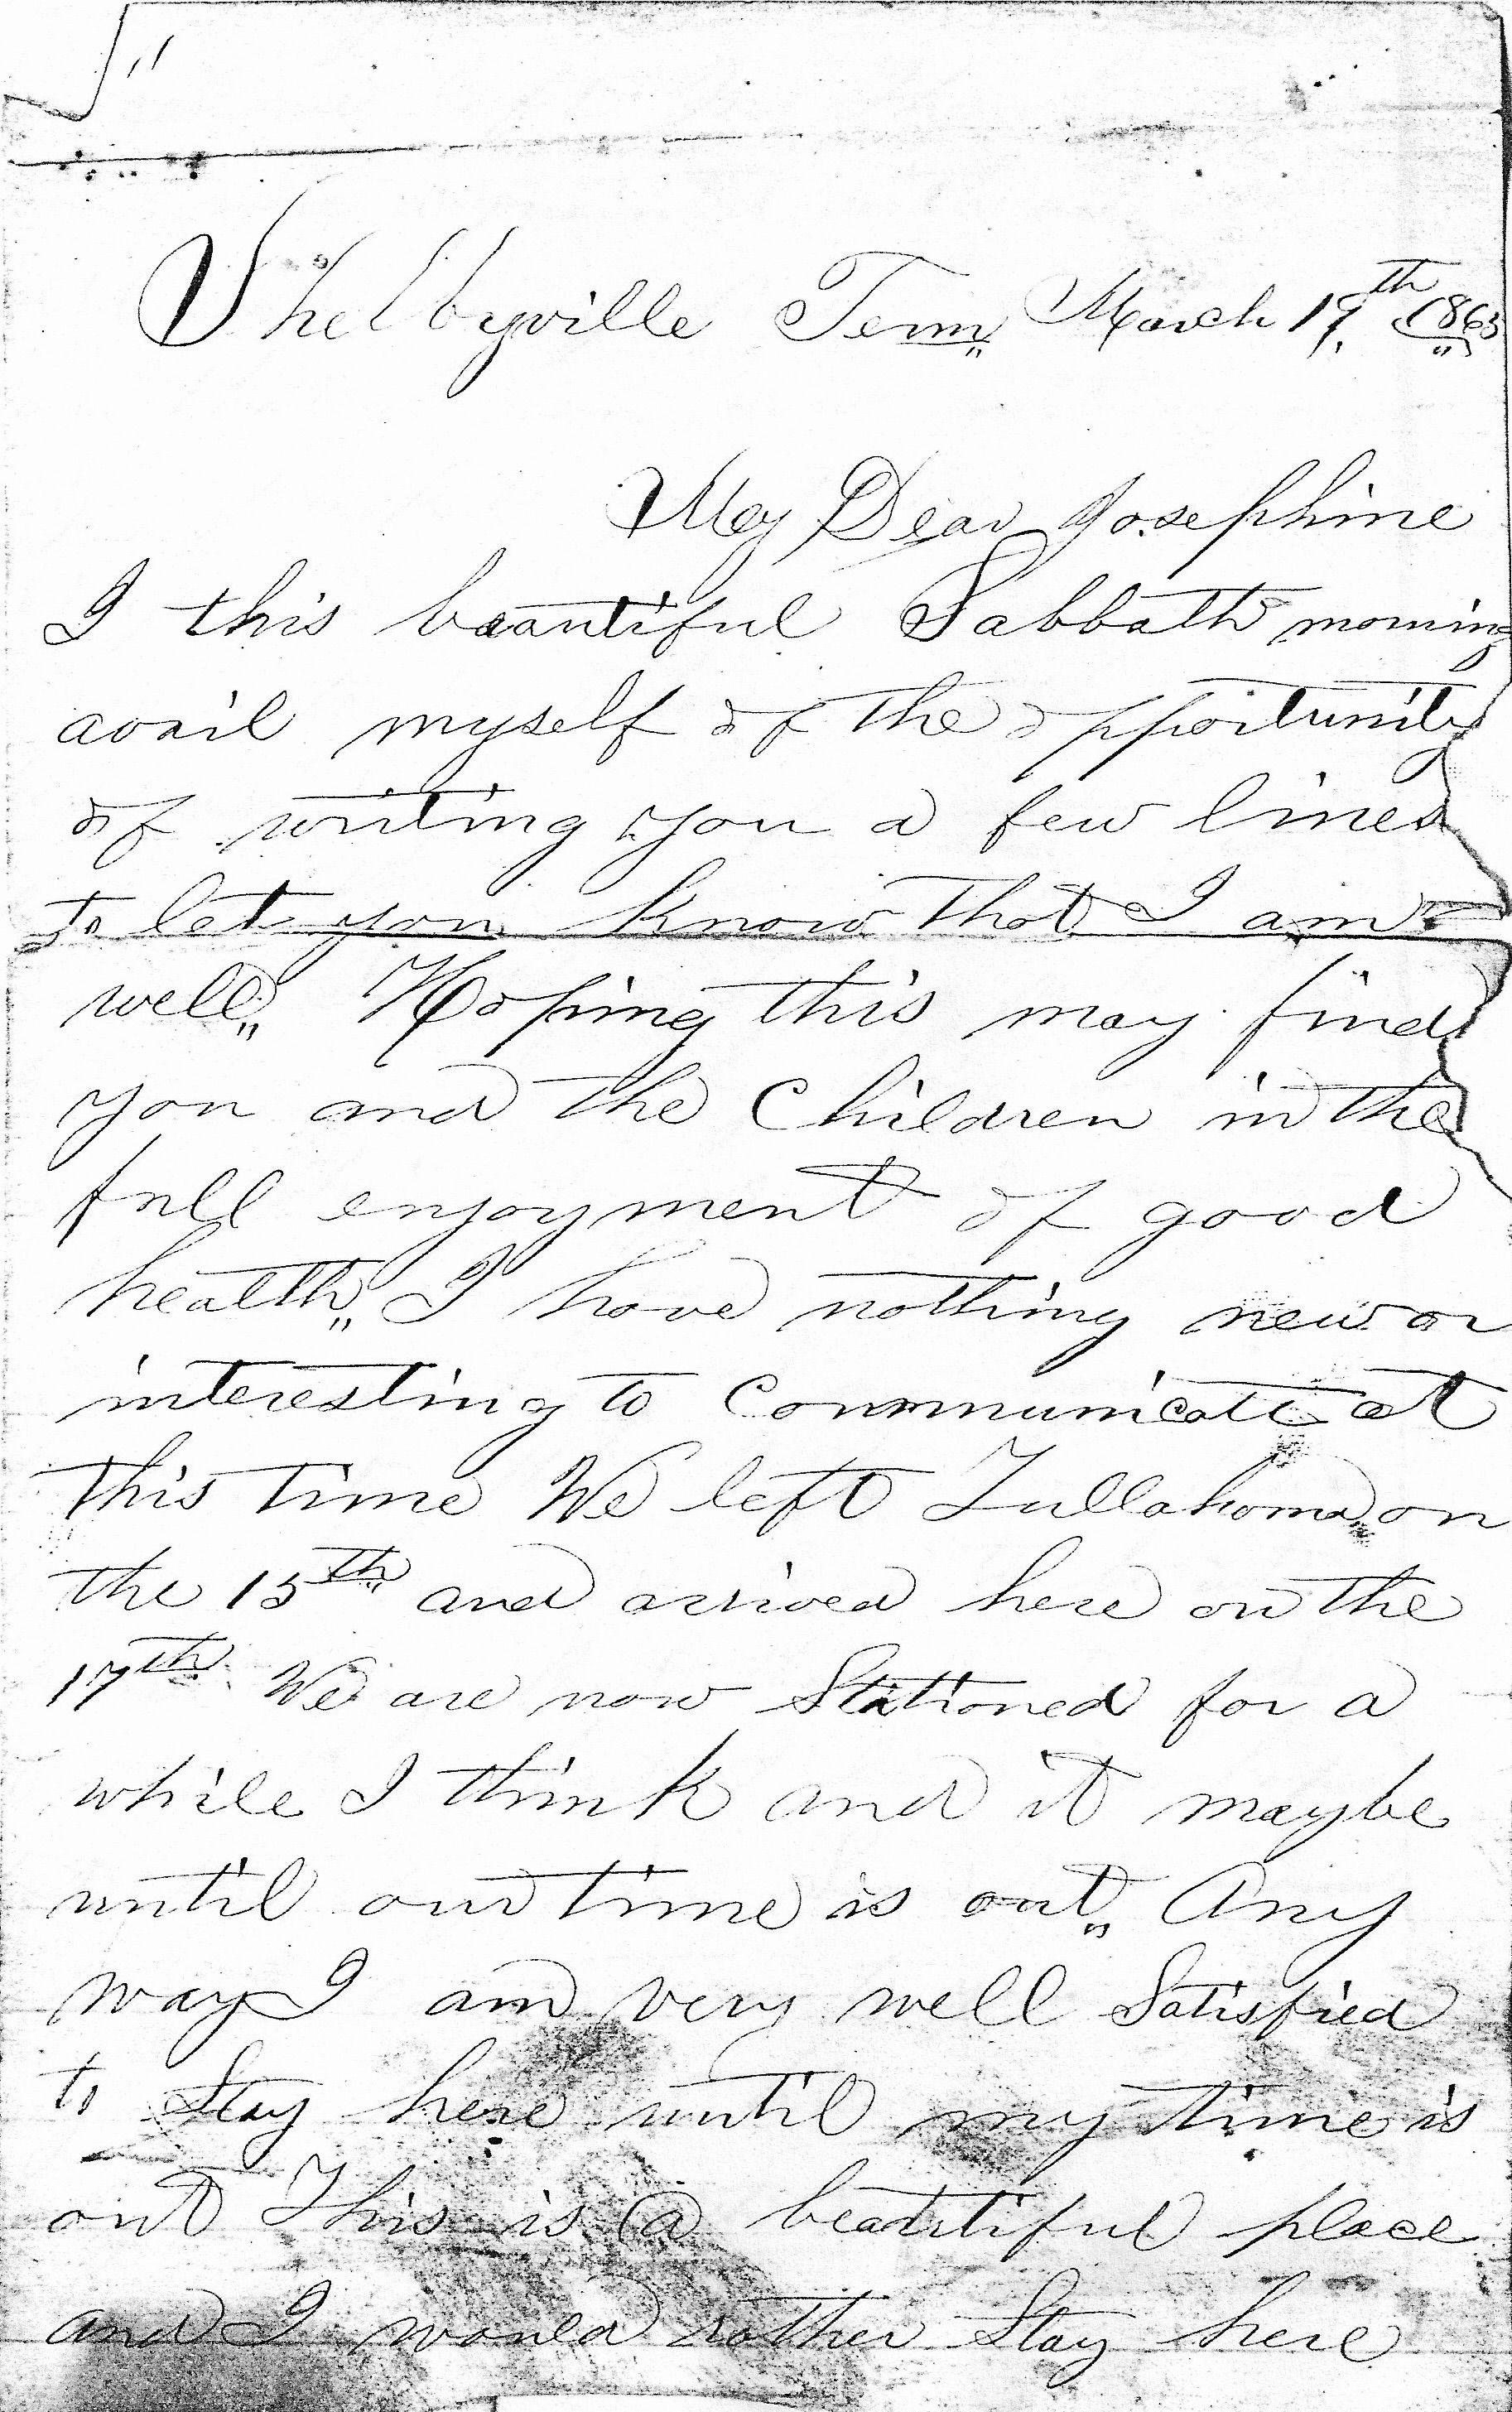 Shelbyville Tenn March 19th 1863
My Dear Josephine
I this beautiful Sabbath morning
avail myself of the opportunity
of writing you a few lines
to let you know that I am
well, Hoping this may find
you and the Children in the
full enjoyment of good
health, I have nothing new or
interesting to Communicate at
this time We left Tullahoma on
the 15th and arrived here on the
17th We are now Stationed for a
while I think and it maybe
until our time is out, Any
way I am very well Satisfied
to Stay here until my time is
out This is a beautiful place
and I would rather Stay here